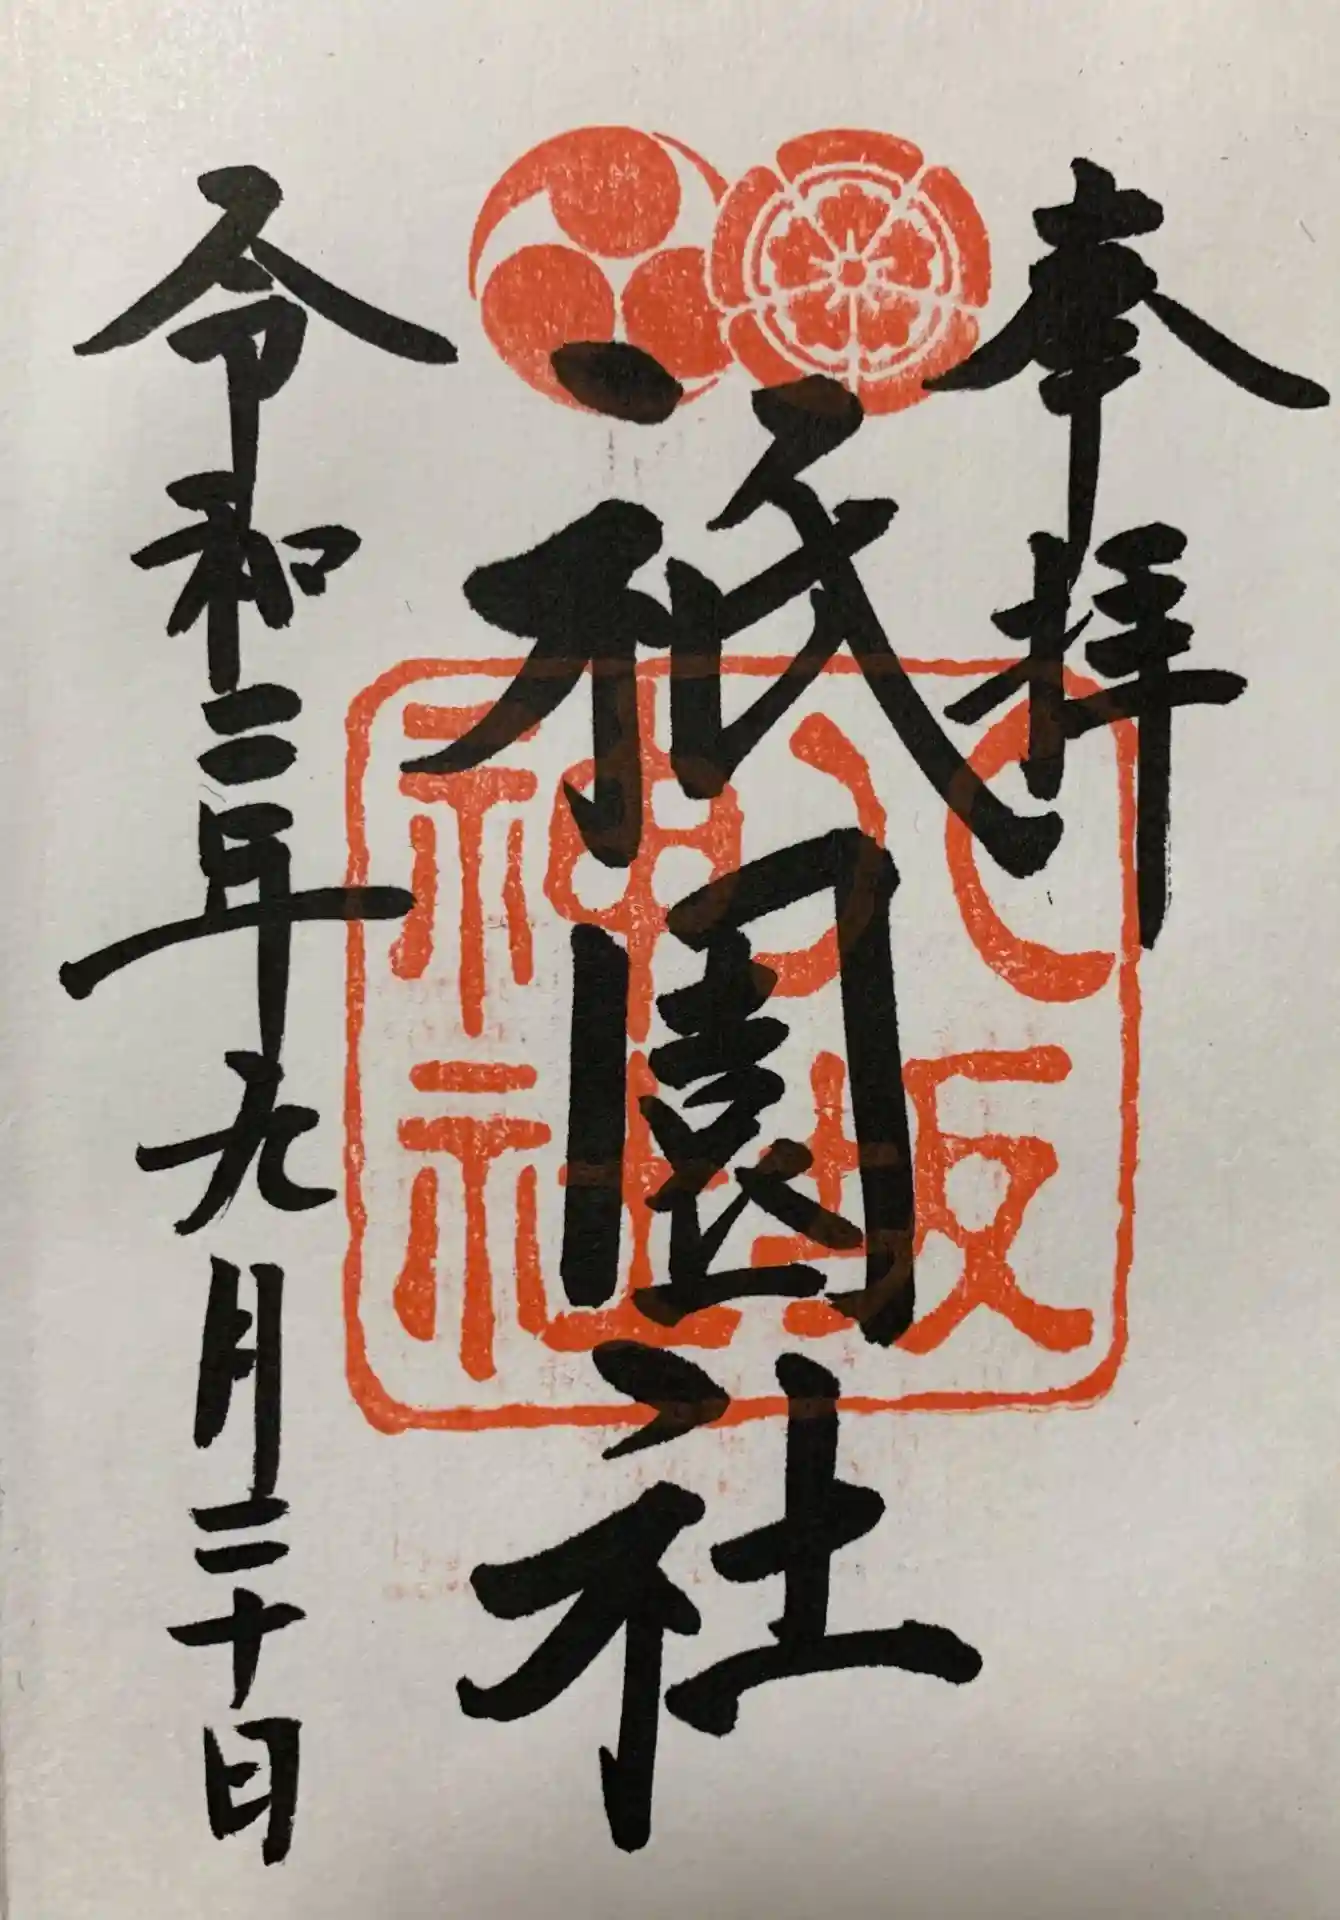 奉拝
祇園社
八坂
神社
令和二年九月二十日